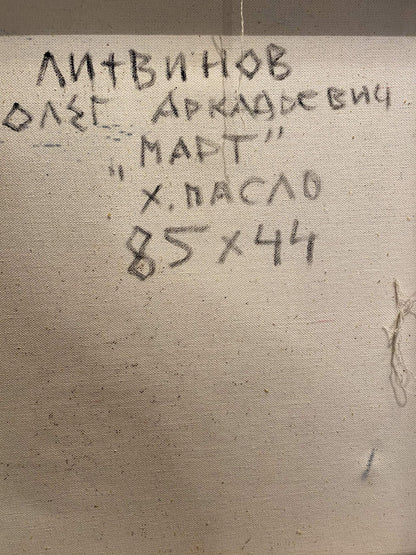 ЛИТВИНОВ
ОЛЕГ АРКАДЬЕВИЧ
„МАРТ”
Х. МАСЛО
85 х 44